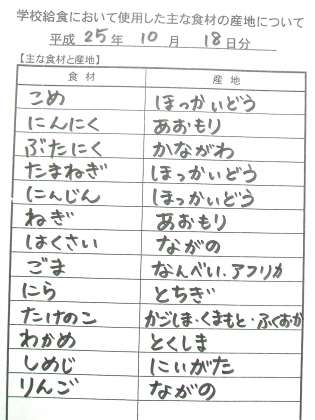 学校給食において使用した主な食材の産地について
平成 25 年 10 月 18 日分
【主な食材と産地】
食材 産地
こめ ほっかいどう
にんにく あおもり
ぶたにく かながわ
たまねぎ ほっかいどう
にんじん ほっかいどう
ねぎ あおもり
はくさい ながの
ごま なんべい、アフリカ
にら とちぎ
たけのこ かごしま・くまもと・ふくおか
わかめ とくしま
しめじ にいがた
りんご ながの